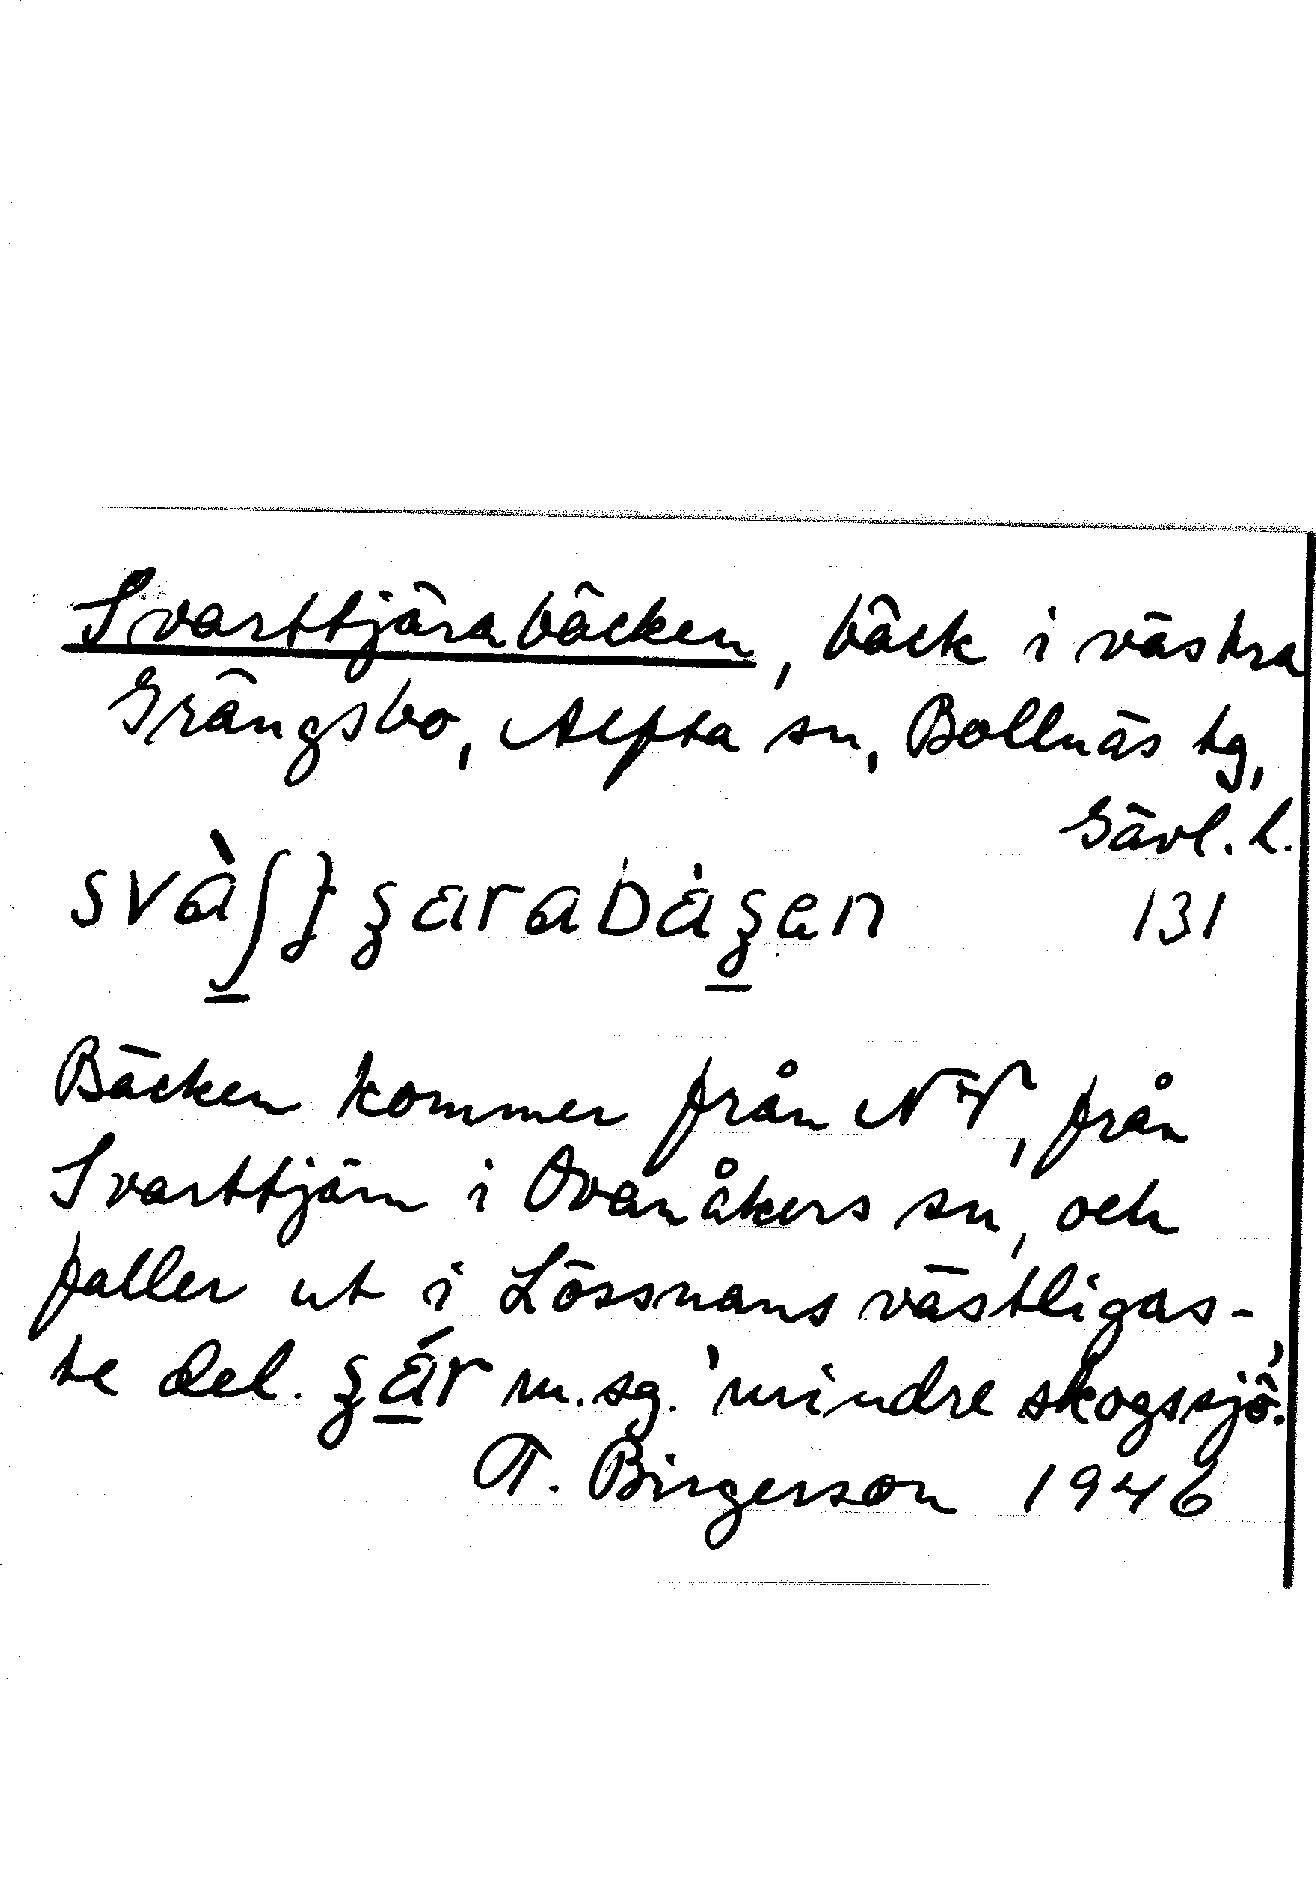 Svarttjärabäcken, bäck i västra
Grängsbo, Alfta sn, Bollnäs tg,
Gävl. l.
131
Bäcken kommer från NV, från
Svarttjärn i Ovanåkers sn, och
faller ut i Lössnans västligas-
te del. m.sg. 'mindre skogssjö'.
T. Birgerson 1946